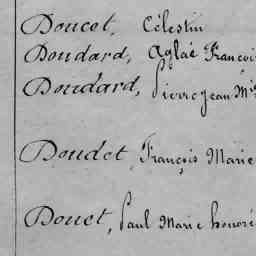 Doucet, Célestin
Doudard, Aglaé Françoi
Doudard, Pierre Jean M
Doudet, François Marie
Douet, Paul Marie honoré